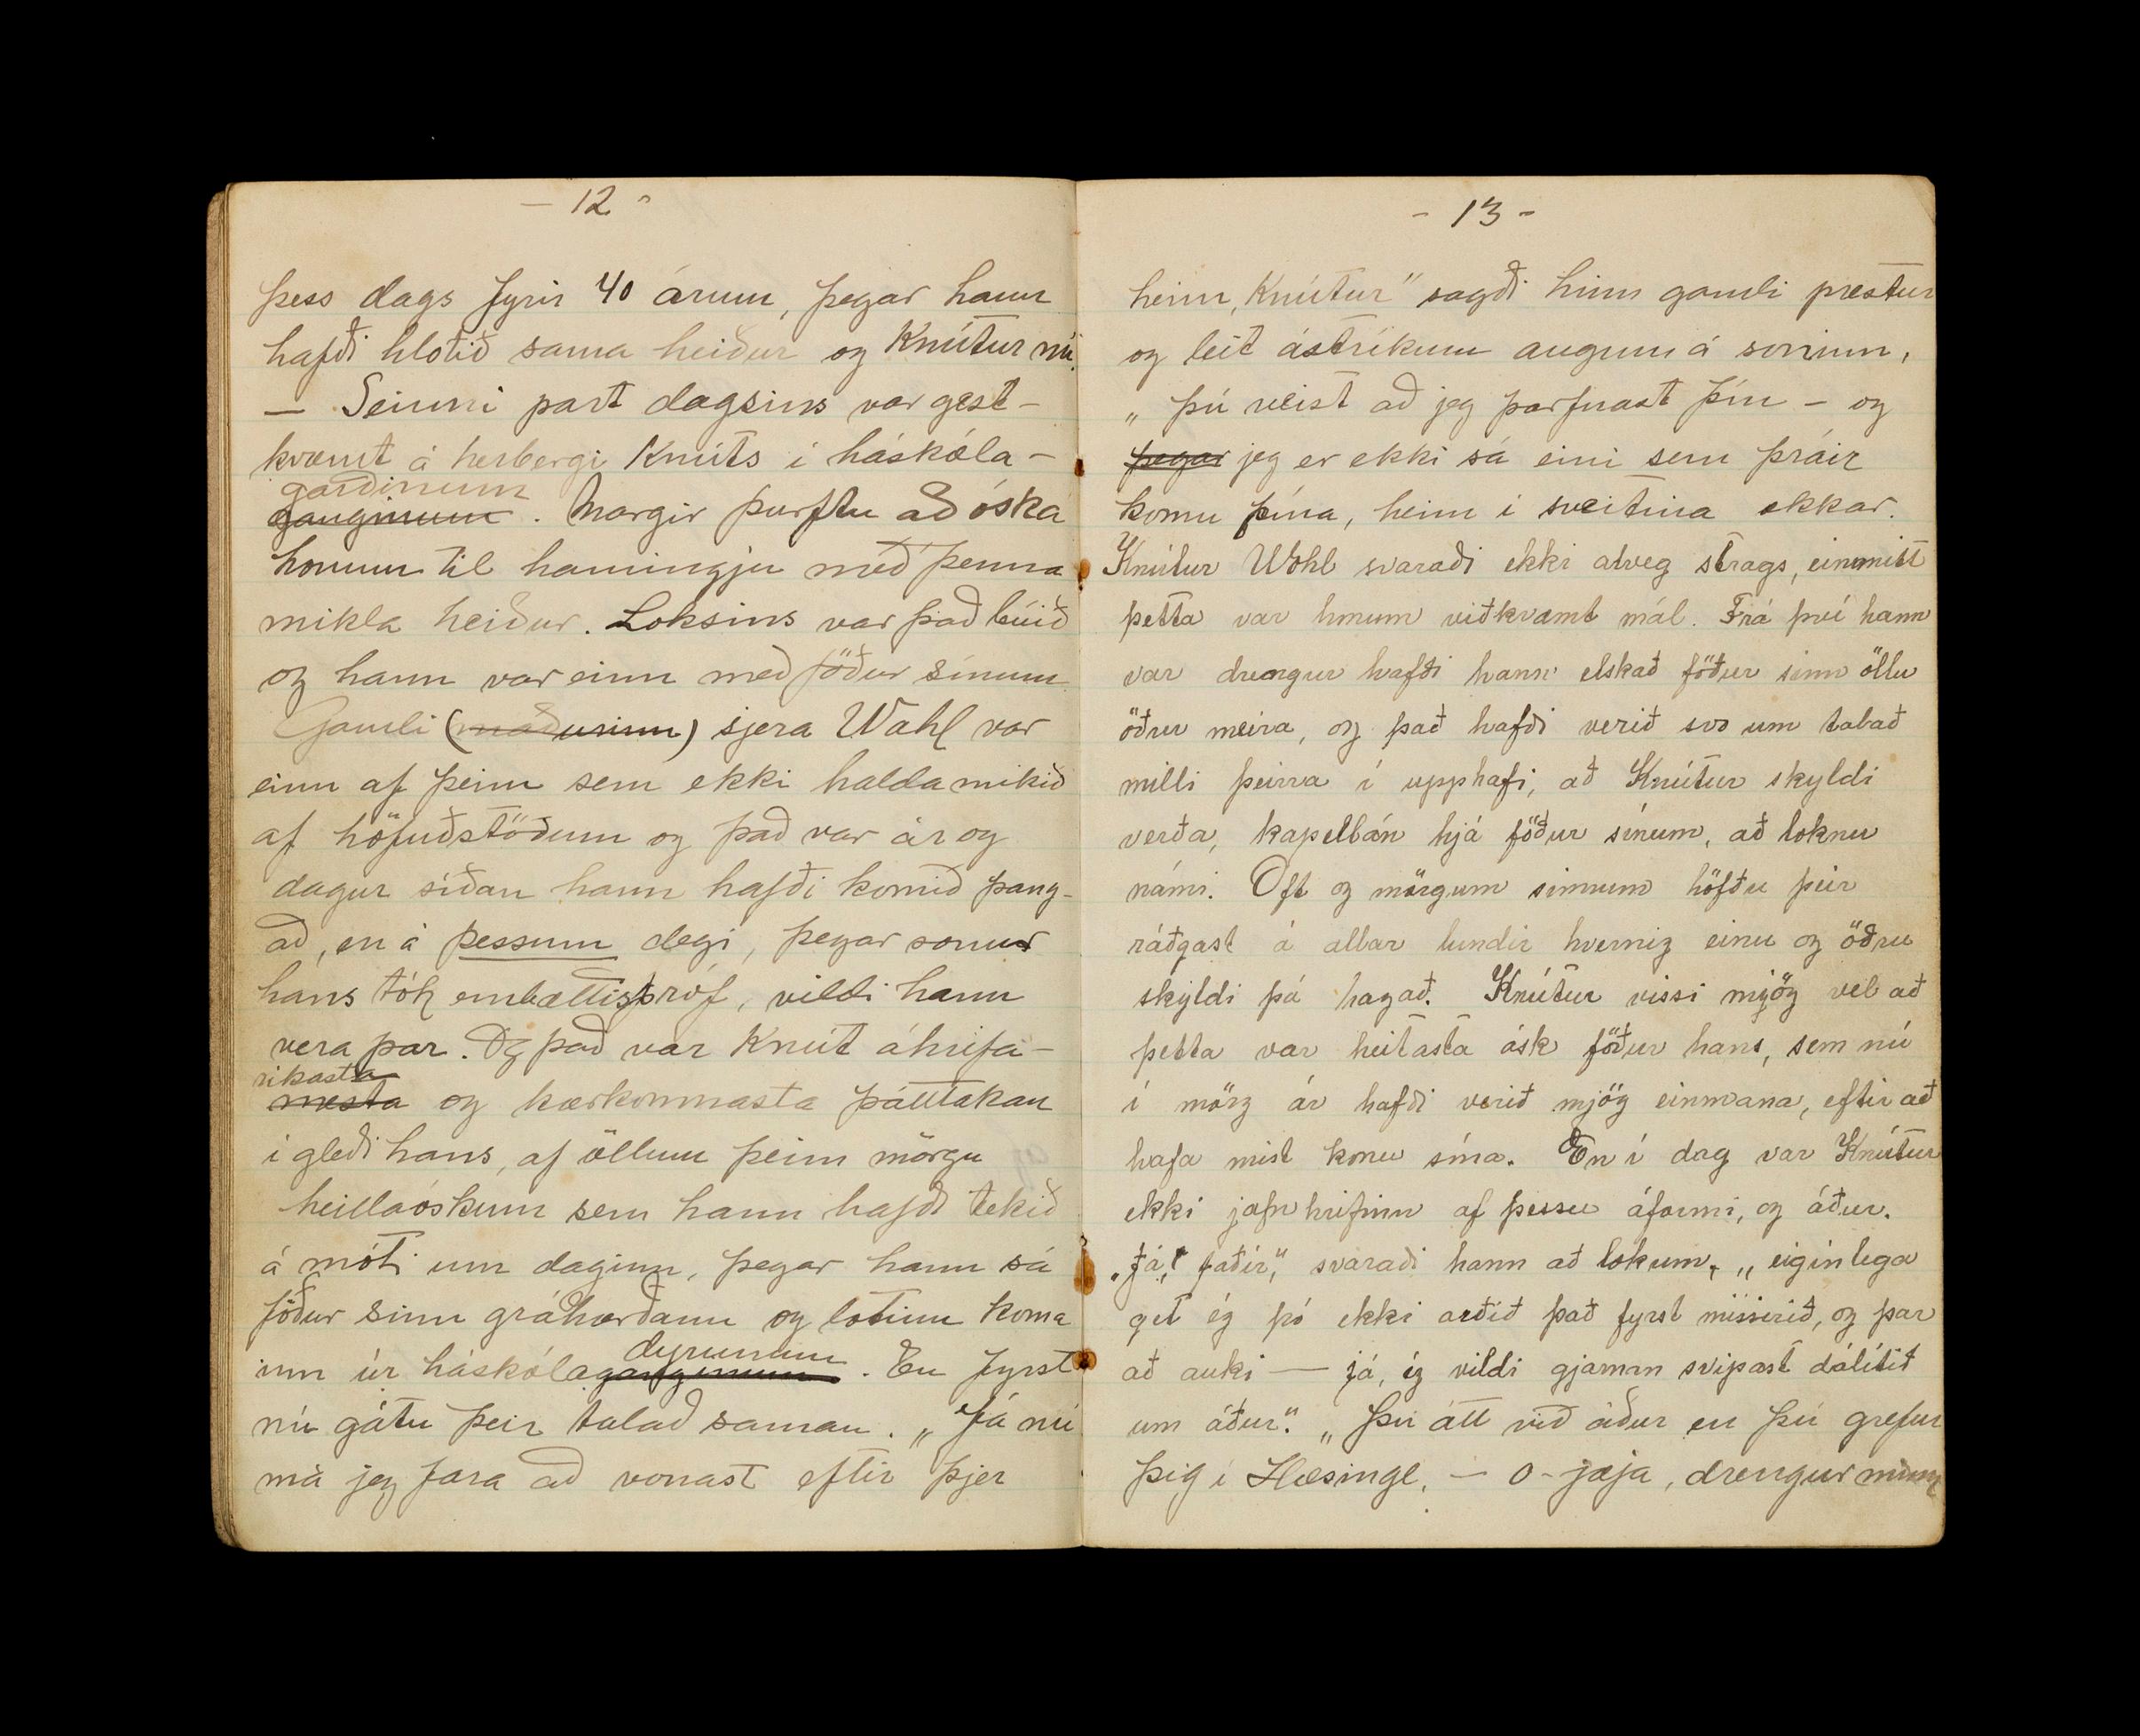 - 12 -
þess dags fyrir 40 árum, þegar hann
hafði hlotið sama heiður og Knútur nú.
— Seinni part dagsins var gest-
kvæmt á herbergi Knúts i háskóla-
garðinum
ganginum. Margir þurftu að óska
honum til hamingju með þenna
mikla heiður. Loksins var það búið
og hann var einn með föður sínum
Gamli (maðurinn) sjera Wahl var
einn af þeim sem ekki halda mikið
af höfuðstöðum og það var ár og
dagur síðan hann hafði komið þang-
að, en á þessum degi, þegar sonur
hans tók embættispróf, vildi hann
vera þar. Og það var Knút áhrifa-
rikasta
mesta og kærkomnasta þátttakan
i gleði hans, af öllum þeim mörgu
heillaóskum sem hann hafði tekið
á móti um daginn, þegar hann sá
föður sinn gráhærðann og lotinn koma
dyrunum
inn úr háskólaganginum. En fyrst
nú gátu þeir talað saman. „Já nú
má jeg fara að vonast eftir þjer
- 13 -
heim, Knútur" sagði hinn gamli prestur
og leit ástríkum augum á soninn,
„þú veist að jeg þarfnast þín - og
þegar jeg er ekki sá eini sem þráir
komu þína, heim i sveitina okkar.
Knútur Wohl svaraði ekki alveg strags, einmitt
þetta var hnum viðkvæmt mál. Frá því hann
var drengur hafði hann elskað föður sinn öllu
öðru meira, og það hafði verið svo um talað
milli þeirra í upphafi, að Knútur skyldi
verða, kapellán hjá föður sínum, að loknu
námi. Oft og mörgum sinnum höfðu þeir
ráðgast á allar lundir hvernig einu og öðru
skyldi þá hagað. Knútur vissi mjög vel að
þetta var heitasta ósk föður hans, sem nú
í mörg ár hafði verið mjög einmana, eftir að
hafa mist konu sína. En í dag var Knútur
ekki jafn hrifinn af þessu áformi, og áður.
„Já, faðir", svaraði hann að lokum, „eiginlega
get ég þó ekki orðið það fyrst missirið, og þar
að auki — já, ég vildi gjarnan svipast dálítið
um áður". „Þú átt við áður en þú grefur
þig i Hæsinge, — o-jæja, drengur minn